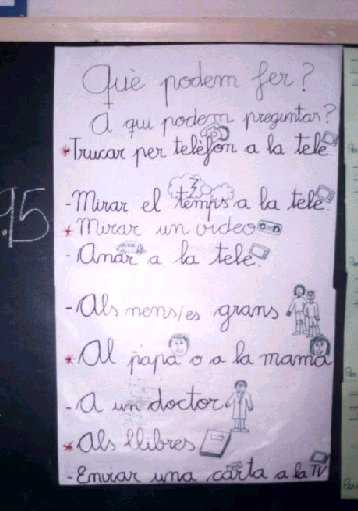 Què podem fer?
A qui podem preguntar?
* Trucar per telèfon a la tele
- Mirar el temps a la tele.
* Mirar un video
- Anar a la tele.
- Als nens/es grans
* Al papà o a la mamà
- A un doctor.
* Als llibres
- Enviar una carta a la TV
95